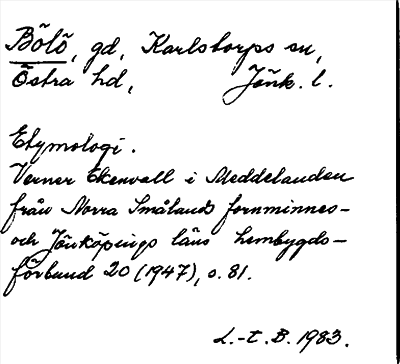 Bölö, gd, Karlstorps sn,
Östra hd, Jönk. l.
Etymologi.
Verner Ekenvall i Meddelanden
från Norra Smålands fornminnes-
och Jönköpings läns hembygds-
förbund 20 (1947), s. 81.
L.-t. B. 1983.